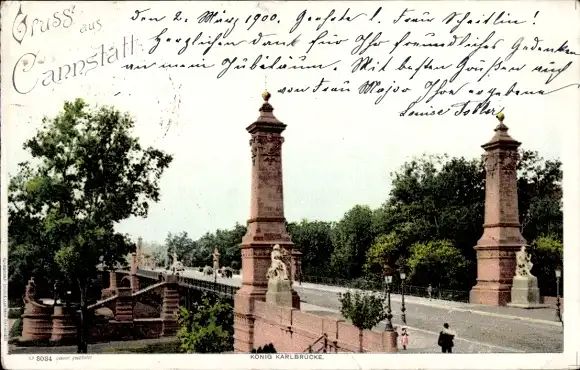 Gruss aus
Cannstatt.
den 2. März 1900. Geehrte l. Frau Scheitlin!
Herzlichen Dank für Ihr freundliches Gedenken
an mein Jubiläum. Mit besten Grüßen auch
von Frau Major Ihre ergebene
Louise
5054
KÖNIG KARLBRÜCKE.